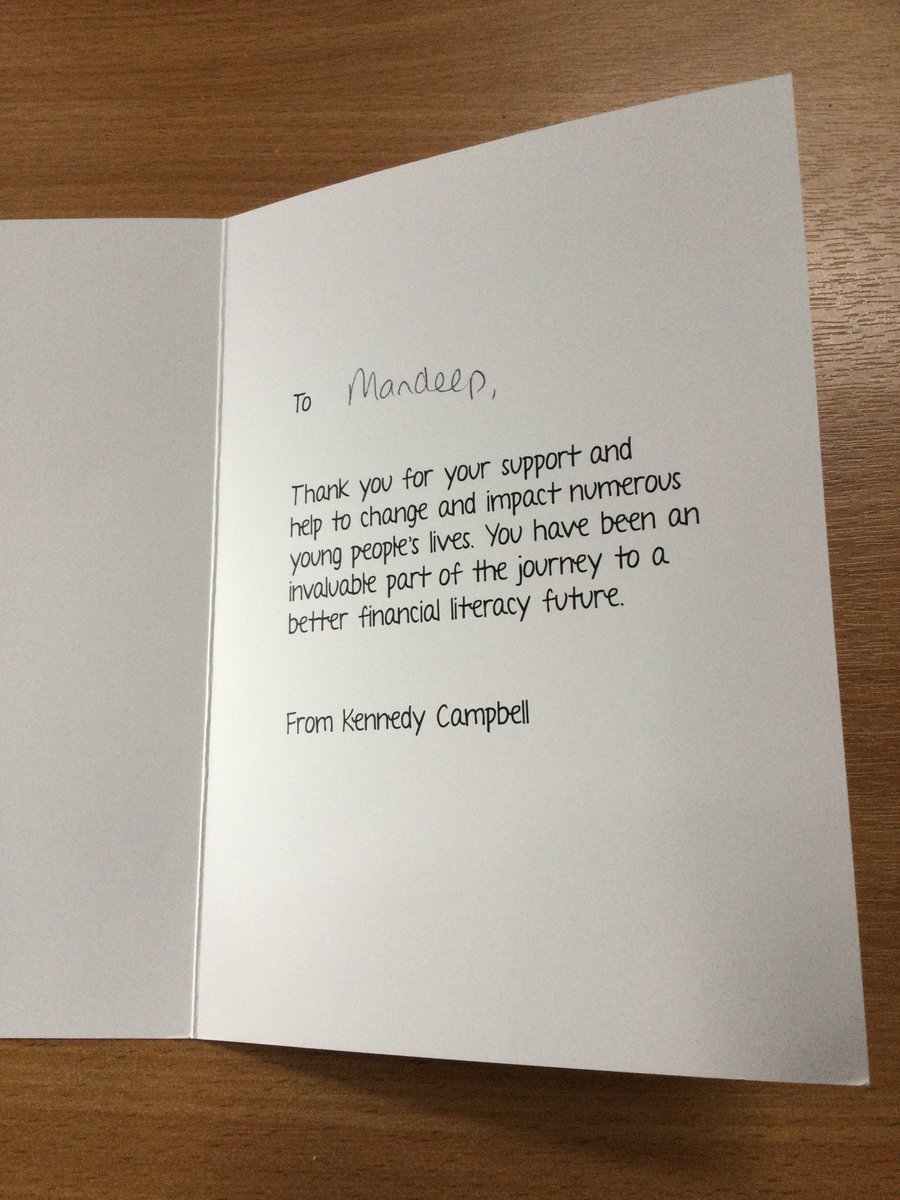 To Mandeep,
Thank you for your support and
help to change and impact numerous
young people's lives. You have been an
invaluable part of the journey to a
better financial literacy future.
From Kennedy Campbell